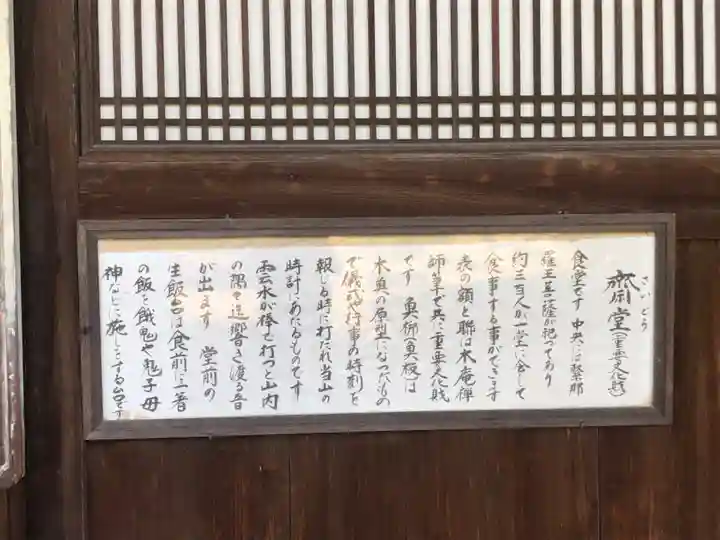 さいどう
斎堂(重要文化財)
食堂です 中央には緊那
羅王菩薩が祀ってあり
約三百人が一堂に会して
食事する事ができます
表の額と聯は木庵禅
師筆で共に重要文化財
です 魚梆(魚板)は
木魚の原型になったもの
で儀式や行事の時刻を
報じる時に打たれ当山の
時計にあたるものです
雲水が棒で打つと山内
の隅々迄響き渡る音
が出ます 堂前の
生飯台は食前に一箸
の飯を餓鬼や鬼子母
神などに施しをする台です